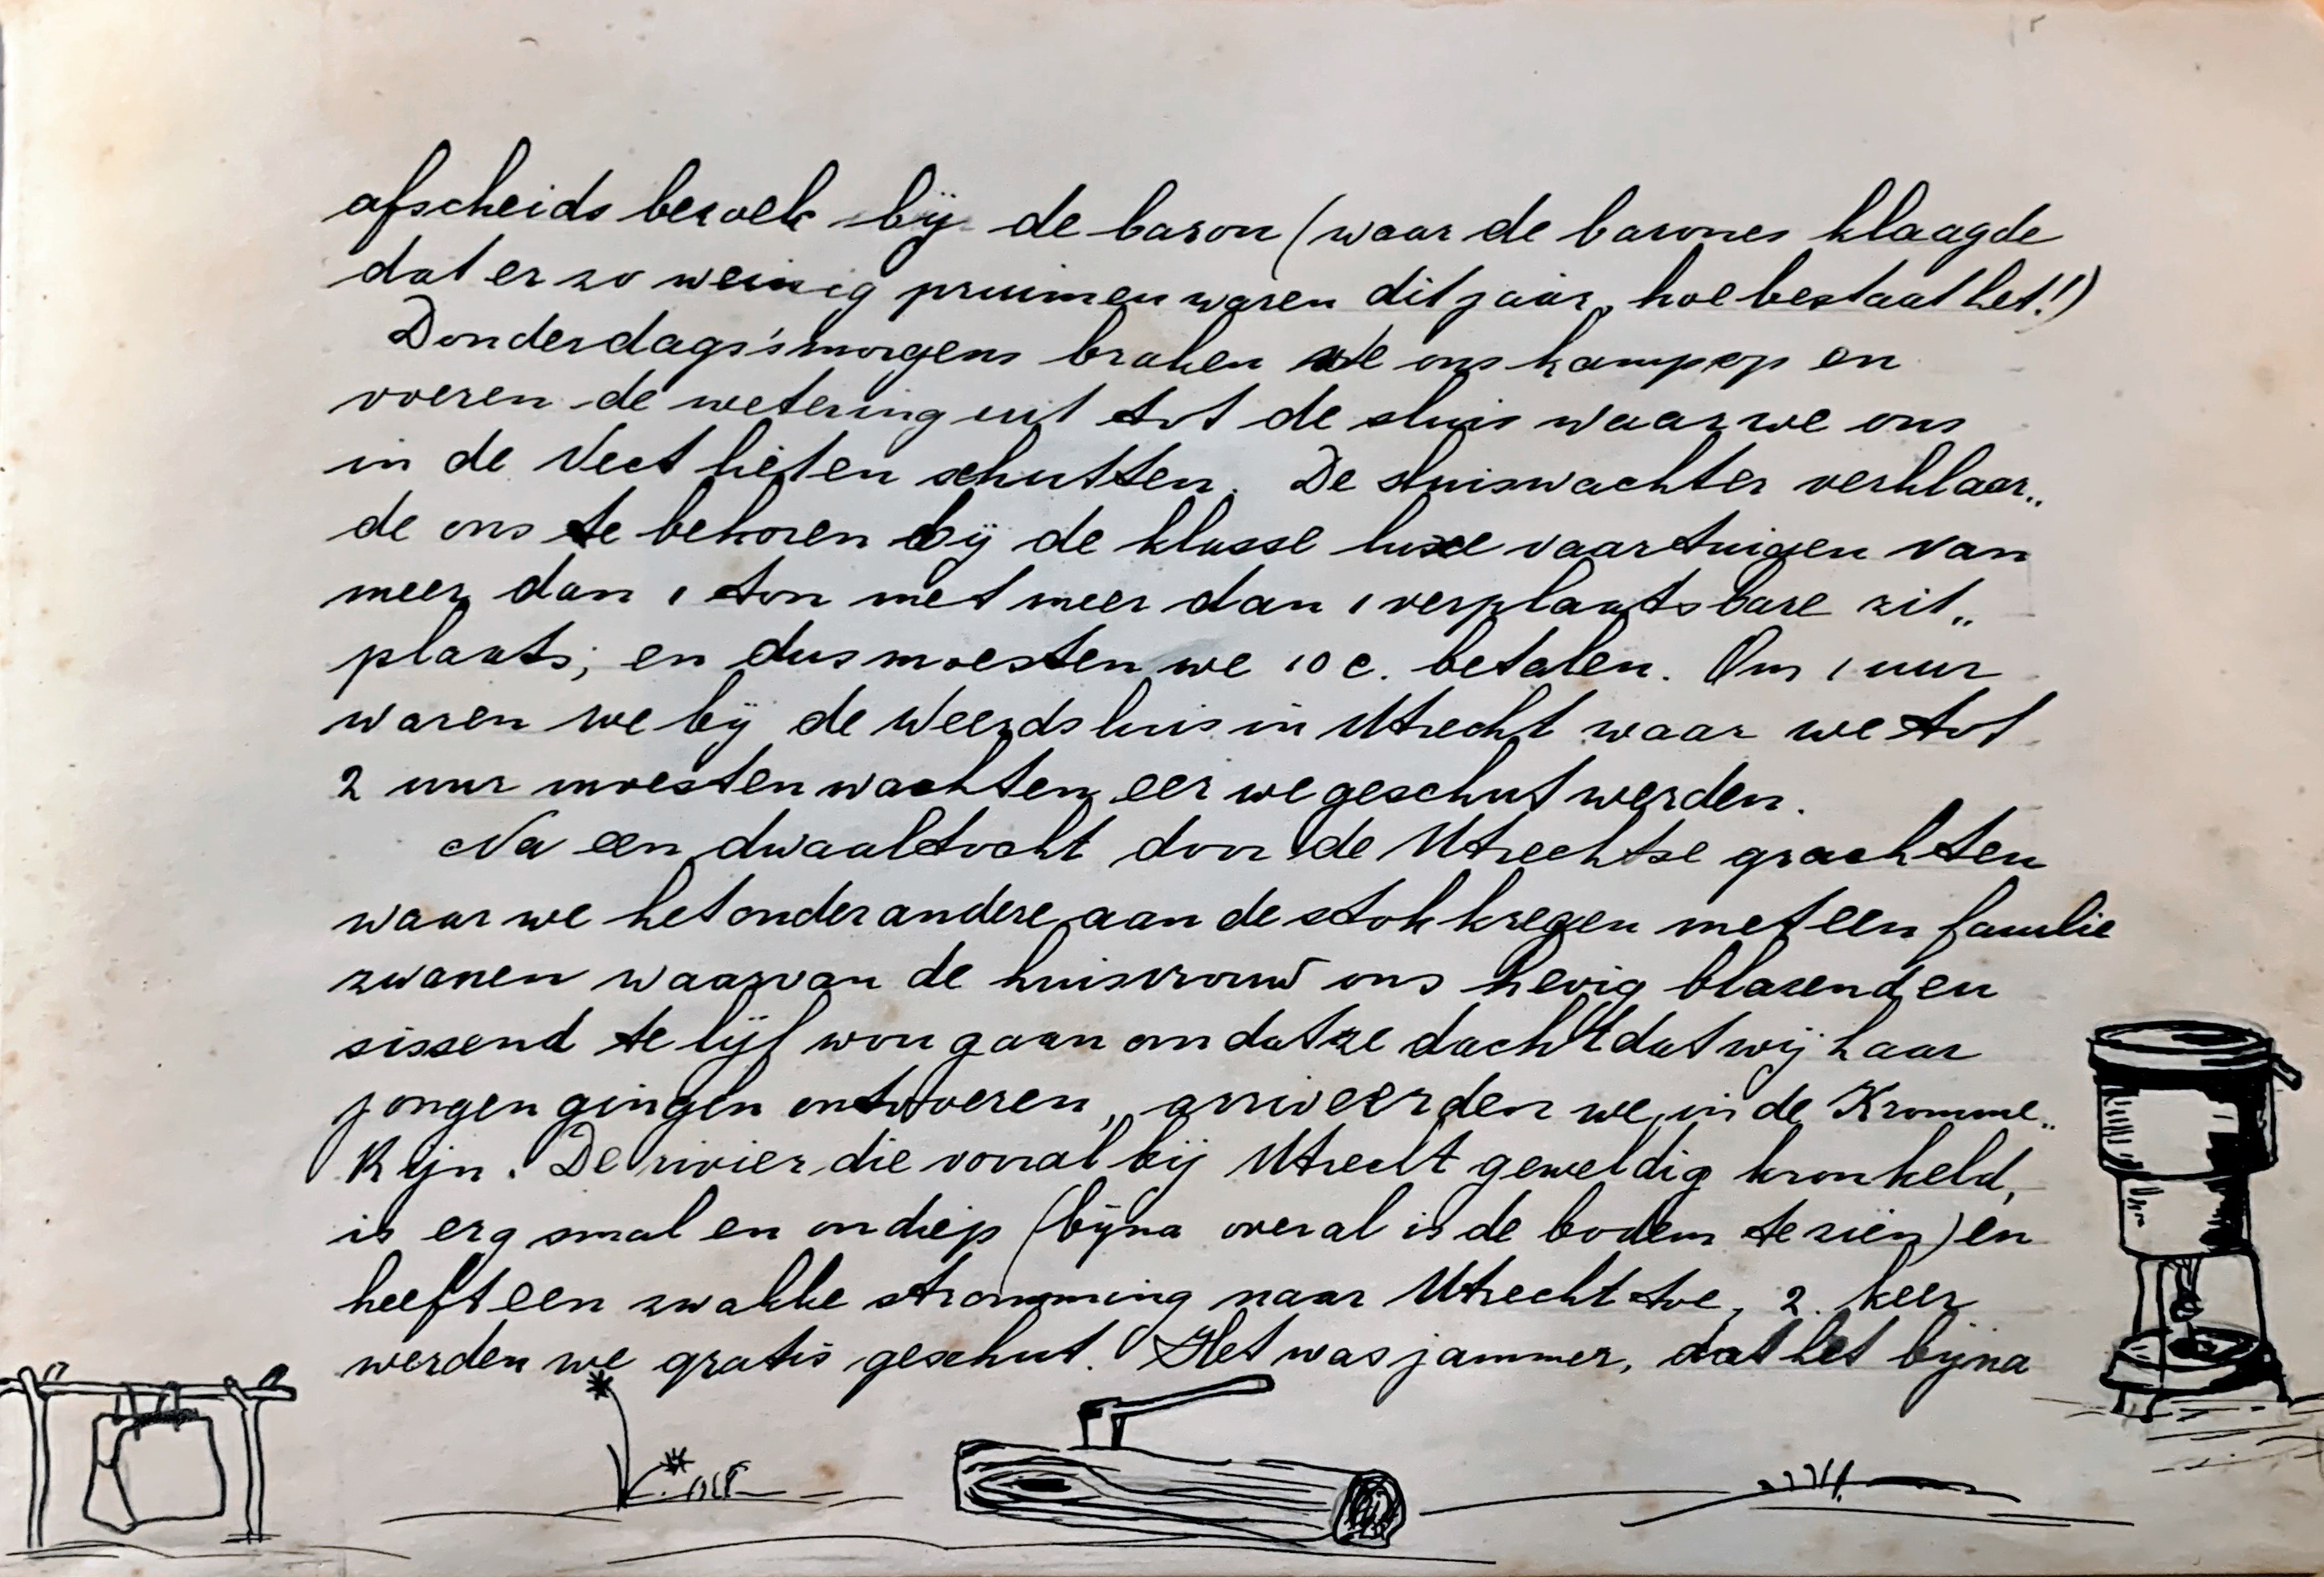 afscheids bezoek bij de baron (waar de barones klaagde
dat er zo weinig pruimen waren dit jaar, hoe bestaat het!')
Donderdags'smorgens braken we ons kamp op en
voeren de wetering uit tot de sluis waar we ons
in de Vect lieten schutten. De sluiswachter verklaar„
de ons te behoren bij de klasse luxe vaartuigen van
meer dan 1 ton met meer dan 1 verplaatsbare zit„
plaats; en dus moesten we 10 c. betalen. Om 1 uur
waren we bij de Weerdsluis in Utrecht waar we tot
2 uur moesten wachten eer we geschut werden.
Na een dwaaltocht door de Utrechtse grachten
waar we het onder andere aan de stok kregen met een familie
zwanen waarvan de huisvrouw ons hevig blazend en
sissend te lijf wou gaan omdat ze dacht dat wij haar
jongen gingen ontvoeren, arriveerden we in de Kromme„
Rijn. De rivier die vooral bij Utrecht geweldig kronkeld,
is erg smal en ondiep (bijna overal is de bodem te zien) en
heeft een zwakke stromming naar Utrecht toe, 2 keer
werden we gratis geschut. Het was jammer, dat het bijna